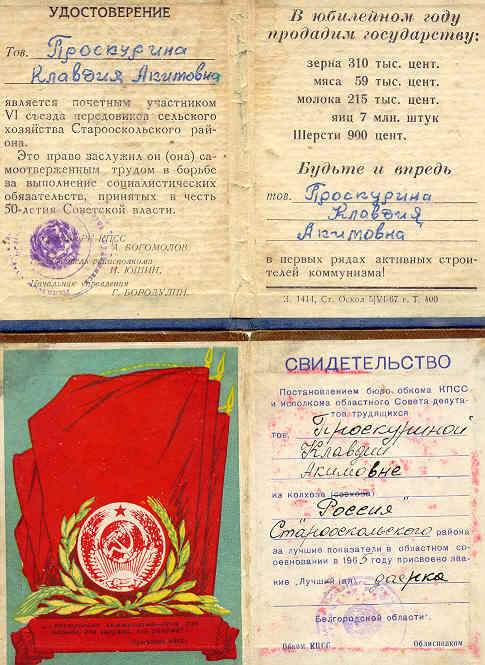 УДОСТОВЕРЕНИЕ
Тов. Проскурина
Клавдия Акимовна
является почетным участником
VI съезда передовиков сельского
хозяйства Старооскольского рай-
она.
Это право заслужил он (она) са-
моотверженным трудом в борьбе
за выполнение социалистических
обязательств, принятых в честь
50-летия Советской власти.
КПСС
А. БОГОМОЛОВ.
райисполкома
И. ЮШИН.
Начальник управления
Г. БОРОДУЛИН.
В юбилейном году
продадим государству:
зерна 310 тыс. цент.
мяса 59 тыс. цент.
молока 215 тыс. цент.
яиц 7 млн. штук
Шерсти 900 цент.
Будьте и впредь
тов. Проскурина
Клавдия
Акимовна
в первых рядах активных строи-
телей коммунизма!
З. 1414, Ст. Оскол 5|VI-67 г. Т. 400
СВИДЕТЕЛЬСТВО
Постановлением бюро обкома КПСС
и исполкома областного Совета депута-
тов трудящихся
тов. Проскуриной
Клавдии
Акимовне
из колхоза (совхоза)
"Россия"
Старооскольского района
за лучшие показатели в областном со-
ревновании в 1965 году присвоено зва-
ние „Лучший(ая) доярка
Белгородской области".
Обком КПСС Облисполком